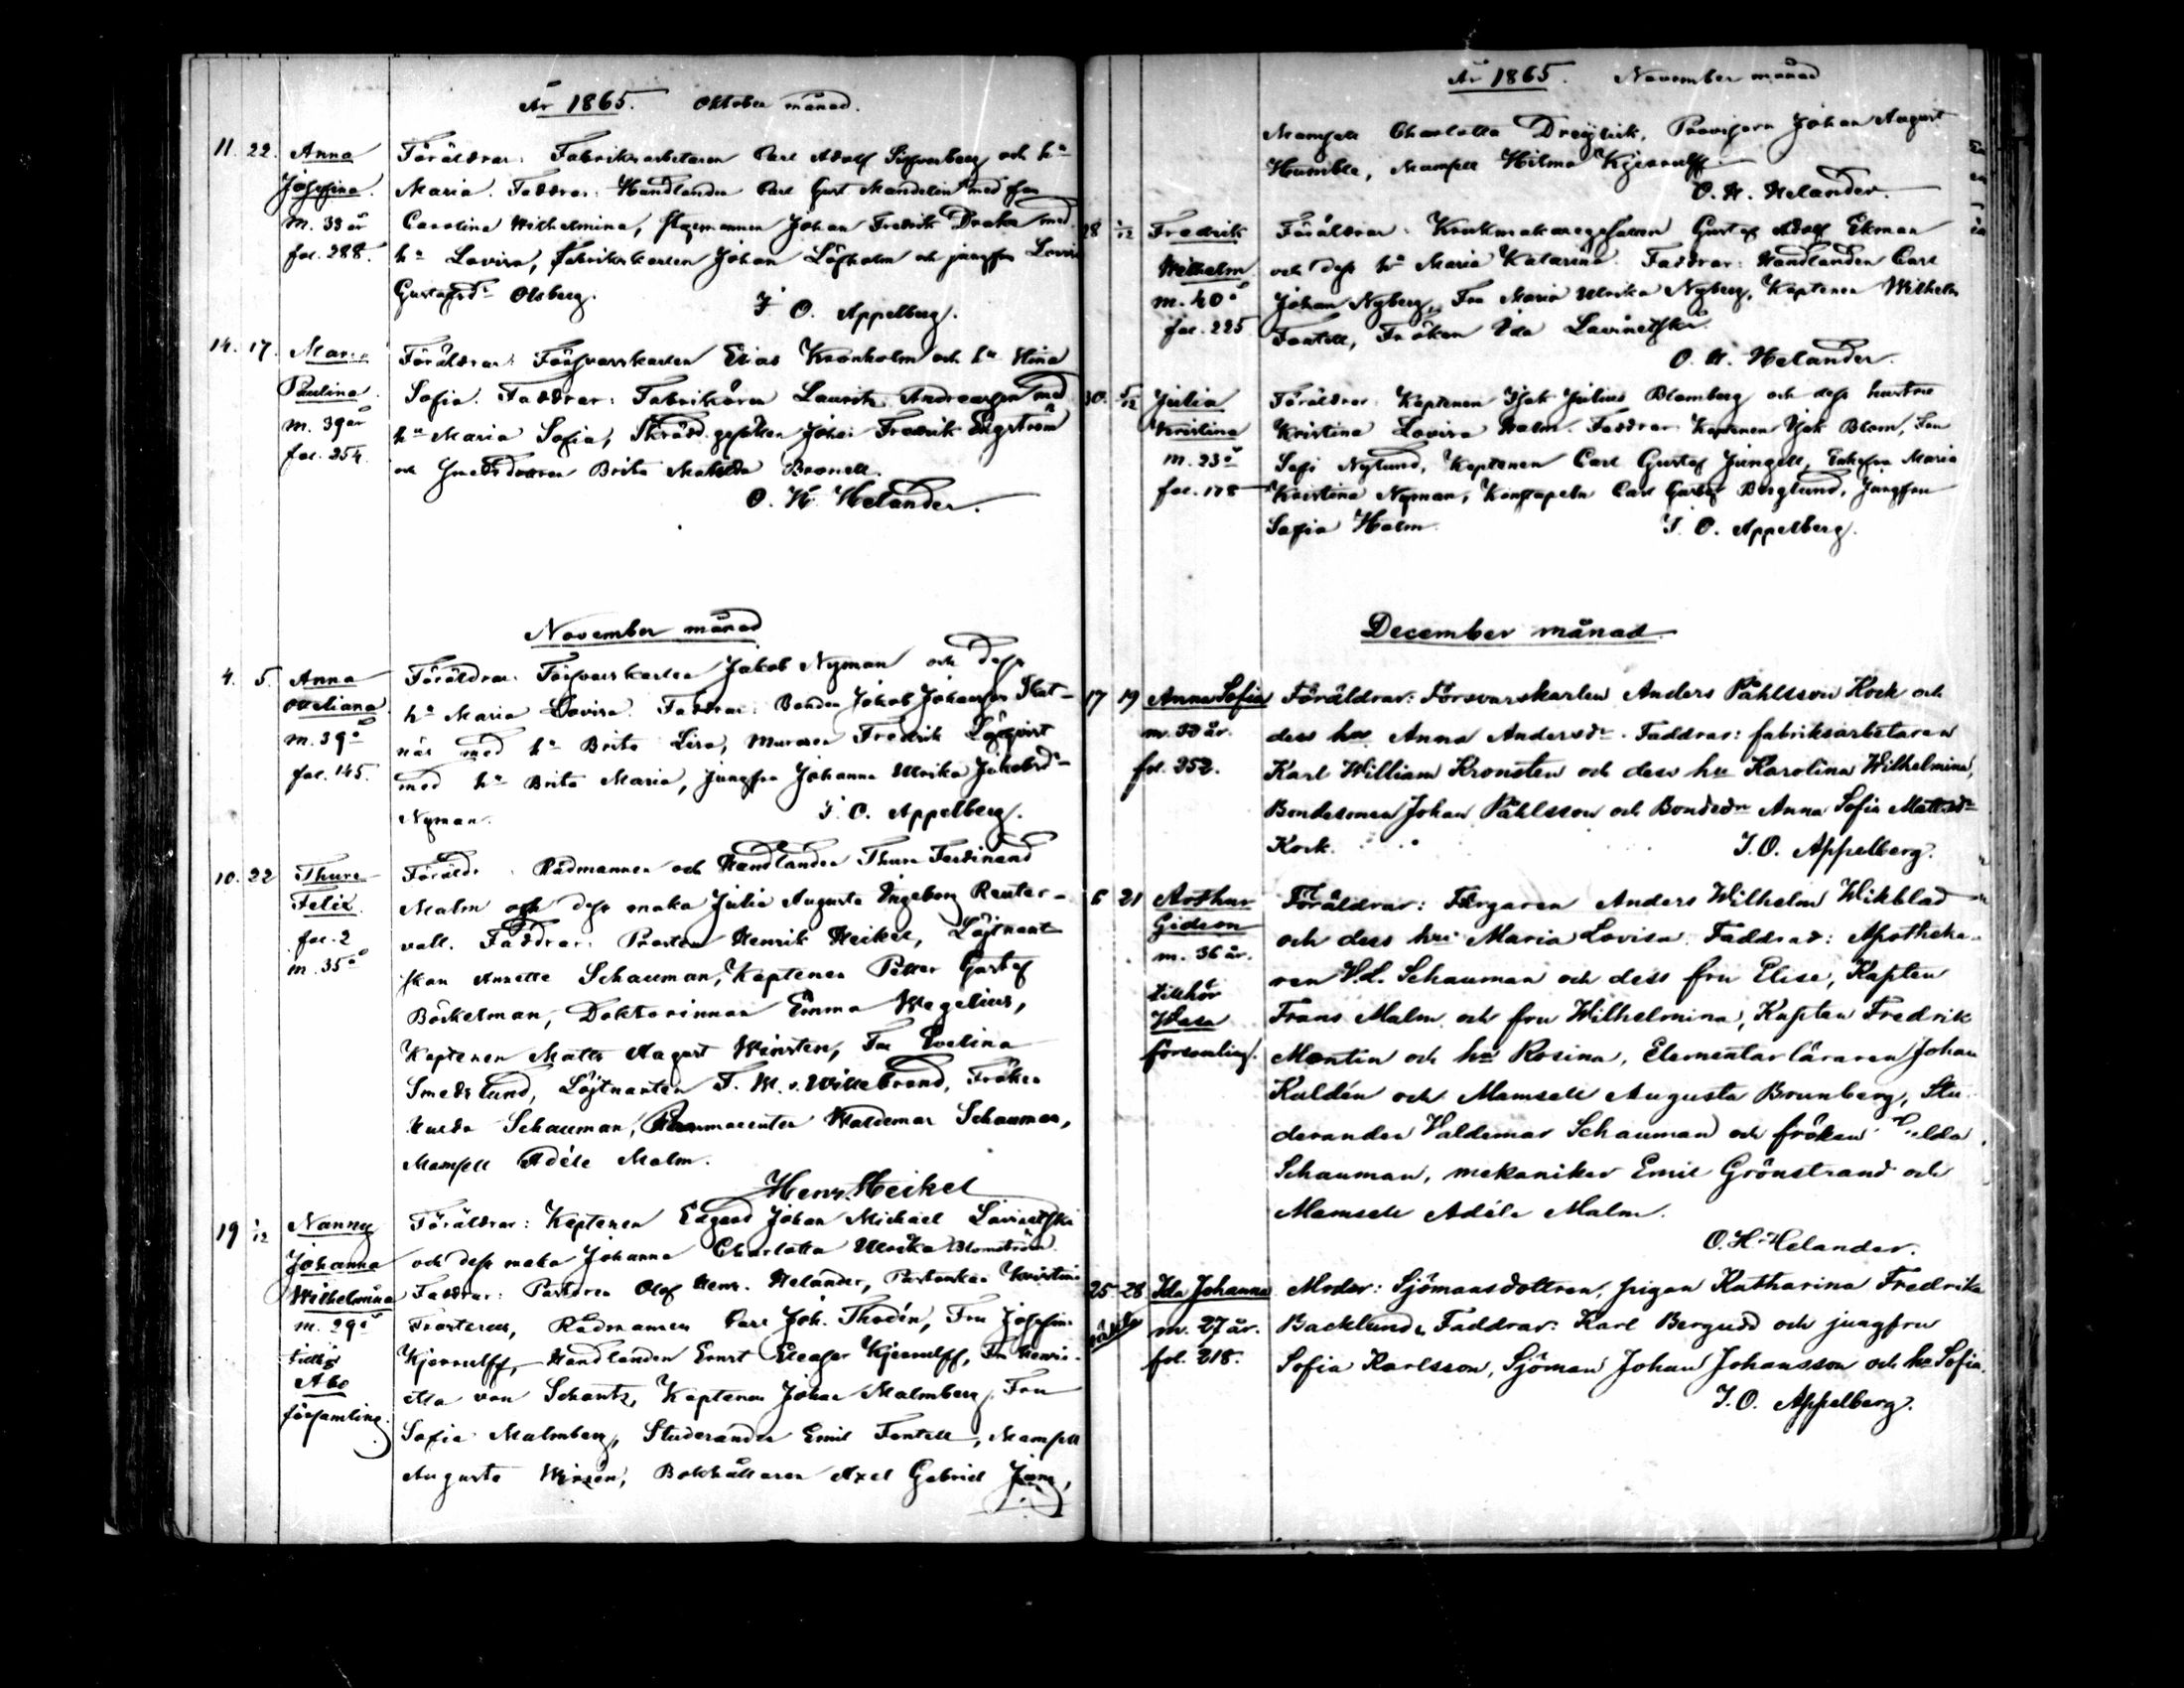 År 1865. Oktober månad.
11. 22. Anna Föräldrar: Fabriksarbetaren Carl Adolf och hu
Josefina. Maria. Faddrar: Handlanden Carl Gust Mandelin med fru
M. 33 år Carolina Wilhelmina, Johan Fredrik Draka med
fol. 288. hu Lovisa, Fabrikskarlen Johan Löfholm och jungfru Lovisa
Gustafsdr Olsberg. J. O. Appelberg.
14. 17. Maria Föräldrar: Försvarskarlen Elias Kronholm och hu Stina
Paulina. Sofia. Faddrar: Fabrikören Laurits Andreassen med
m. 39 år hu Maria Sofia, Johan Fredrik Engström
fol. 254. och Brita Matilda
O. H. Helander.
November månad
4. 5. Anna Föräldrar: Försvarskarlen Jakob Nyman och dess
hu Maria Lovisa. Faddrar: Bonden Jakob Johansson Slat-
m. 39 år när med hu Brita Lisa, Muraren Fredrik Löfqvist
fol. 145. med hu Brita Maria, jungfru Johanna Ulrika Jakobsdr
Nyman. J. O. Appelberg.
10. 22 Thure Föräldr: Rådmannen och Handlanden Thure Ferdinand
Felix. Malm och dess maka Julia Augusta Ingeborg Reuter-
fol. 2 vall. Faddrar: Prosten Henrik Heikel, Löjtnant-
m. 35 år skan Annette Schauman, Kaptenen Petter Gustaf
Böckelman, Doktorinnan Emma Wegelius,
Kaptenen Matts August Weirsten, Fru Evelina
Smedslund, Löjtnanten F. W. v. Willebrand, Fröken
Schauman, Farmaceuten Waldemar Schauman,
Mamsell Adèle Malm.
Henr. Heikel
19 1/12 Nanny Föräldrar: Kaptenen Edgard Johan Michael Lavinetski
Johanna och dess maka Johanna Charlotta Ulrika Blomström.
Wilhelmina Faddrar: Pastorn Olof Henr. Helander, Kristina
m. 29 år Frosterus, Rådmannen Carl Joh. Thodén, Fru Josefina
tillhör Kjerrulff, Handlanden Ernst Eleaser Kjerrulff, Fru Henri-
Åbo von Schantz, Kaptenen Johan Malmberg, Fru
församling. Sofia Malmberg, Studeranden Emil Fontell, Mamsell
Augusta Wirzén, Bokhållaren Axel Gabriel Jung,
År 1865. November månad
Mamsell Charlotta Dreijlick, Provisorn Johan August
Humble, Mamsell Hilma Kjerrulff.
O. H. Helander.
28 1/12 Fredrik Föräldrar: Krukmakaregesällen Gustaf Adolf Ekman
Wilhelm och dess hu Maria Katarina. Faddrar: Handlanden Carl
m. 40 år Johan Nyberg, Fru Maria Ulrika Nyberg, Kaptenen Wilhelm
fol. 225 Fontell, Fröken Ida Lavinetski.
O. H. Helander.
30. 5/12 Julia Föräldrar: Kaptenen Isak Julius Blomberg och dess hustru
Kristina Kristina Lovisa Holm. Faddrar: Kaptenen Isak Blom, Fru
m. 23 år Sofi Nylund, Kaptenen Carl Gustaf Jungell, Enkefru Maria
fol. 178 Kristina Nyman, Konstapeln Carl Gustaf Berglund, Jungfru
Sofia Holm. J. O. Appelberg.
December månad
17 19 Anna Sofia Föräldrar: Försvarskarlen Anders Påhlsson Kock och
m. 30 år. dess hu Anna Andersdr. Faddrar: fabriksarbetaren
fol. 252. Karl William Kronsten och dess hu Karolina Wilhelmina,
Bondesonen Johan Påhlsson och Bondedr Anna Sofia Mattsdr
Kock. J. O. Appelberg.
6 21 Arthur Föräldrar: Färgaren Anders Wilhelm Wikblad
Gideon och dess hu Maria Lovisa. Faddrar: Apotheka-
m. 36 år. ren V. L. Schauman och dess fru Elise, Kapten
tillhör Frans Malm och fru Wilhelmina, Kapten Fredrik
Wasa Montin och hu Rosina, Elementarläraren Johan
församling. Kuldén och Mamsell Augusta Brunberg, Stu-
deranden Valdemar Schauman och fröken
Schauman, mekaniker Emil Grönstrand och
Mamsell Adéle Malm.
O. H. Helander.
25 28 Ida Johanna Moder: Sjömansdottren, pigan Katharina Fredrika
oäkta m. 27 år. Backlund. Faddrar: Karl Bergudd och jungfru
fol. 218. Sofia Karlsson, Sjöman Johan Johansson och hu Sofia.
J. O. Appelberg.